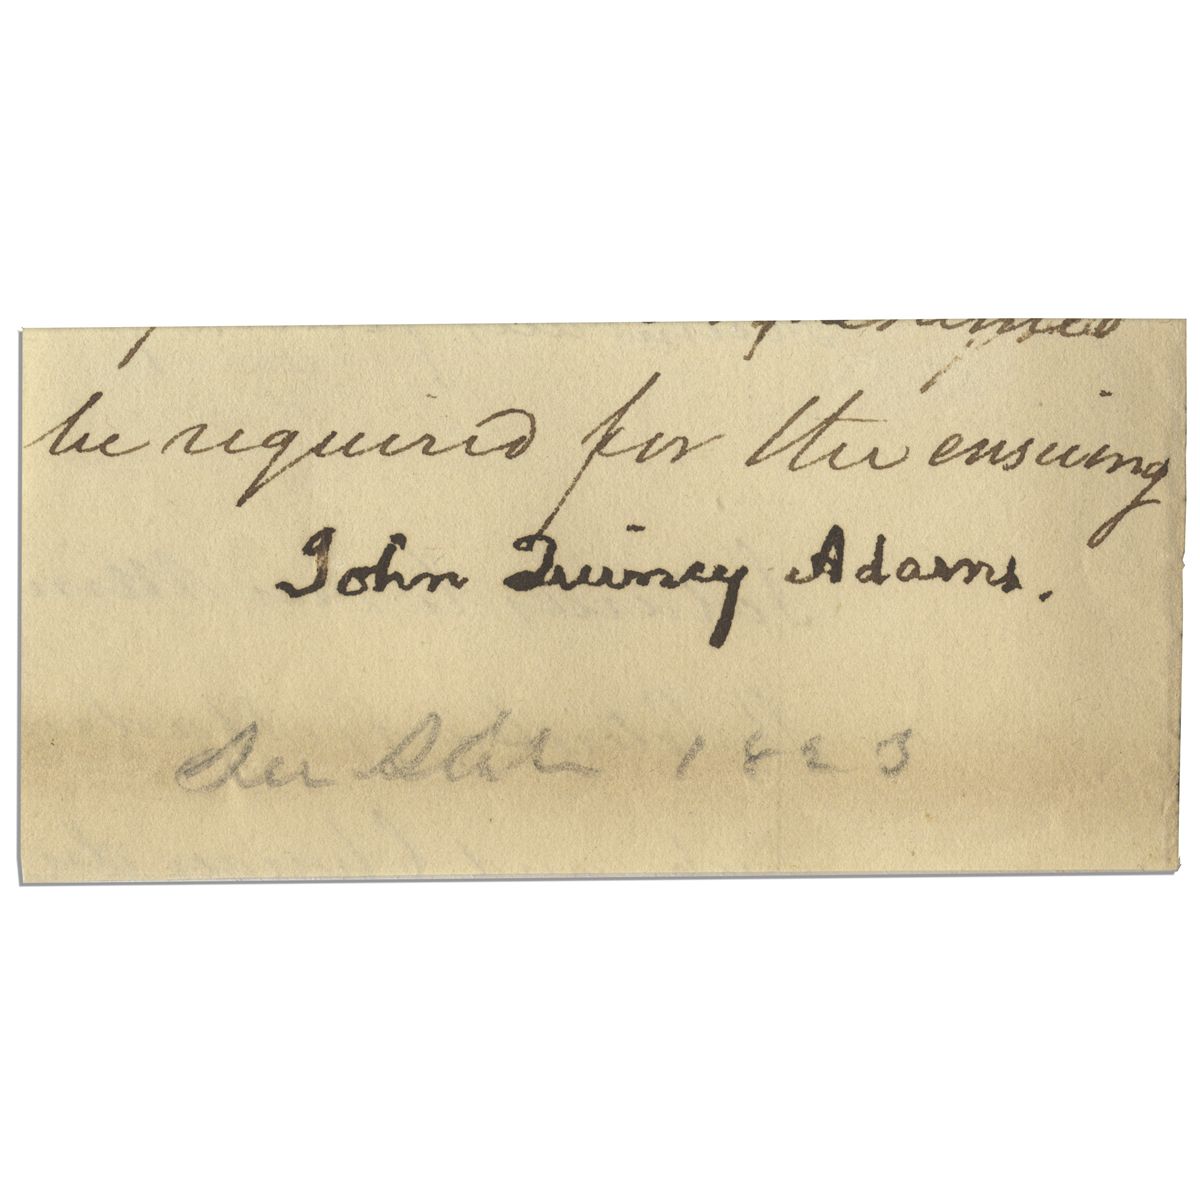 be required for the ensuing
John Quincy Adams.
Sec State 1823